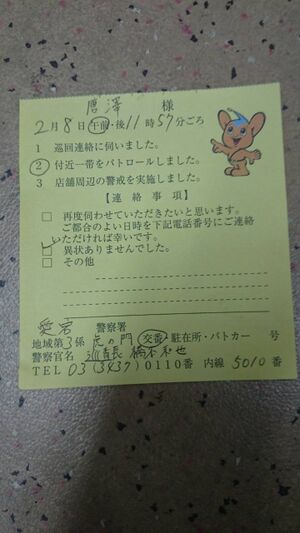 唐澤 様
2月8日 午前・後 11時57分ごろ
1 巡回連絡に伺いました。
2 付近一帯をパトロールしました。
3 店舗周辺の警戒を実施しました。
【連絡事項】
□ 再度伺わせていただきたいと思います。
ご都合のよい日時を下記電話番号にご連絡
いただければ幸いです。
□ 異状ありませんでした。
□ その他
愛宕 警察署
地域第3係 虎の門 交番・駐在所・パトカー 号
警察官名 巡査長 橋本和也
TEL 03(3437)0110番 内線 5010番